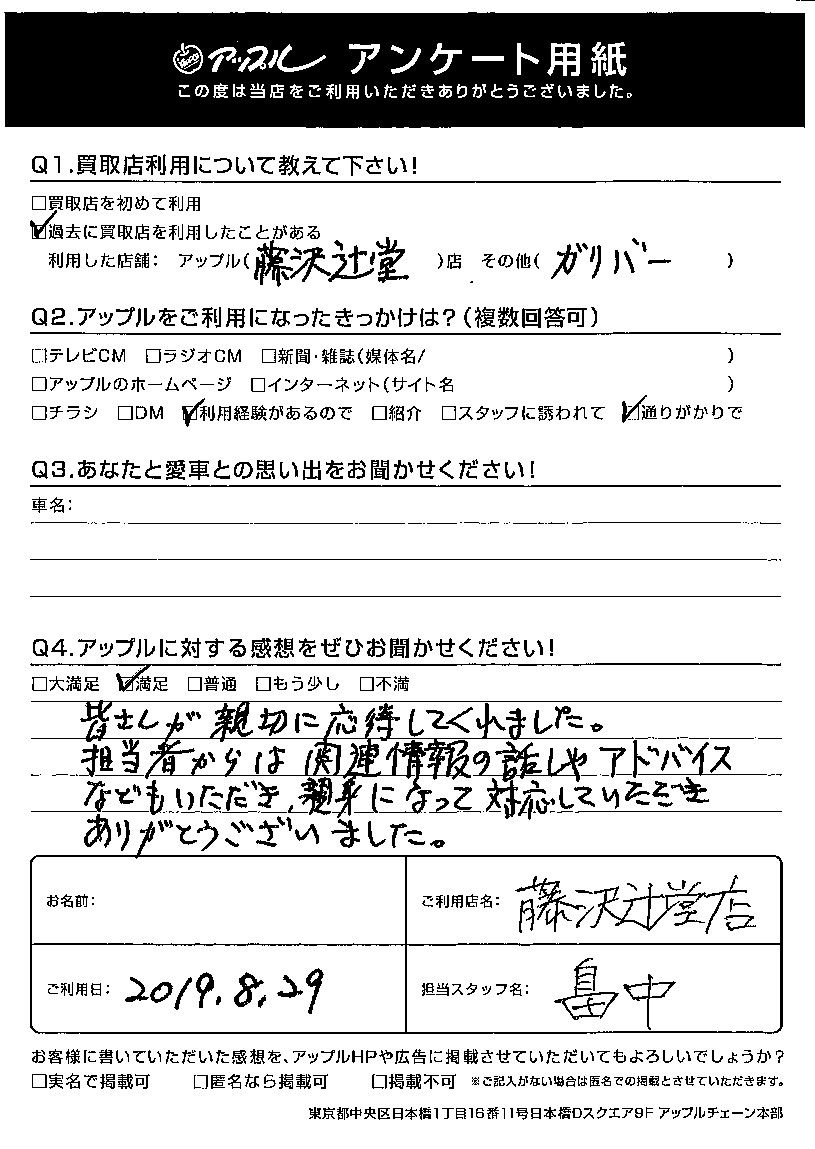 アップル アンケート用紙
この度は当店をご利用いただきありがとうございました。
Q1.買取店利用について教えて下さい!
□買取店を初めて利用
☑過去に買取店を利用したことがある
利用した店舗: アップル(藤沢辻堂)店 その他(ガリバー)
Q2.アップルをご利用になったきっかけは?(複数回答可)
□テレビCM □ラジオCM □新聞・雑誌(媒体名/ )
□アップルのホームページ □インターネット(サイト名 )
□チラシ □DM ☑利用経験があるので □紹介 □スタッフに誘われて ☑通りがかりで
Q3.あなたと愛車との思い出をお聞かせください!
車名:
Q4.アップルに対する感想をぜひお聞かせください!
□大満足 ☑満足 □普通 □もう少し □不満
皆さんが親切に応待してくれました。
担当者からは関連情報の話しやアドバイス
などもいただき、親身になって対応していただき
ありがとうございました。
お名前:
ご利用店名: 藤沢辻堂店
ご利用日: 2019.8.29
担当スタッフ名: 畠中
お客様に書いていただいた感想を、アップルHPや広告に掲載させていただいてもよろしいでしょうか?
□実名で掲載可 □匿名なら掲載可 □掲載不可 ※ご記入がない場合は匿名での掲載とさせていただきます。
東京都中央区日本橋1丁目16番11号日本橋Dスクエア9F アップルチェーン本部